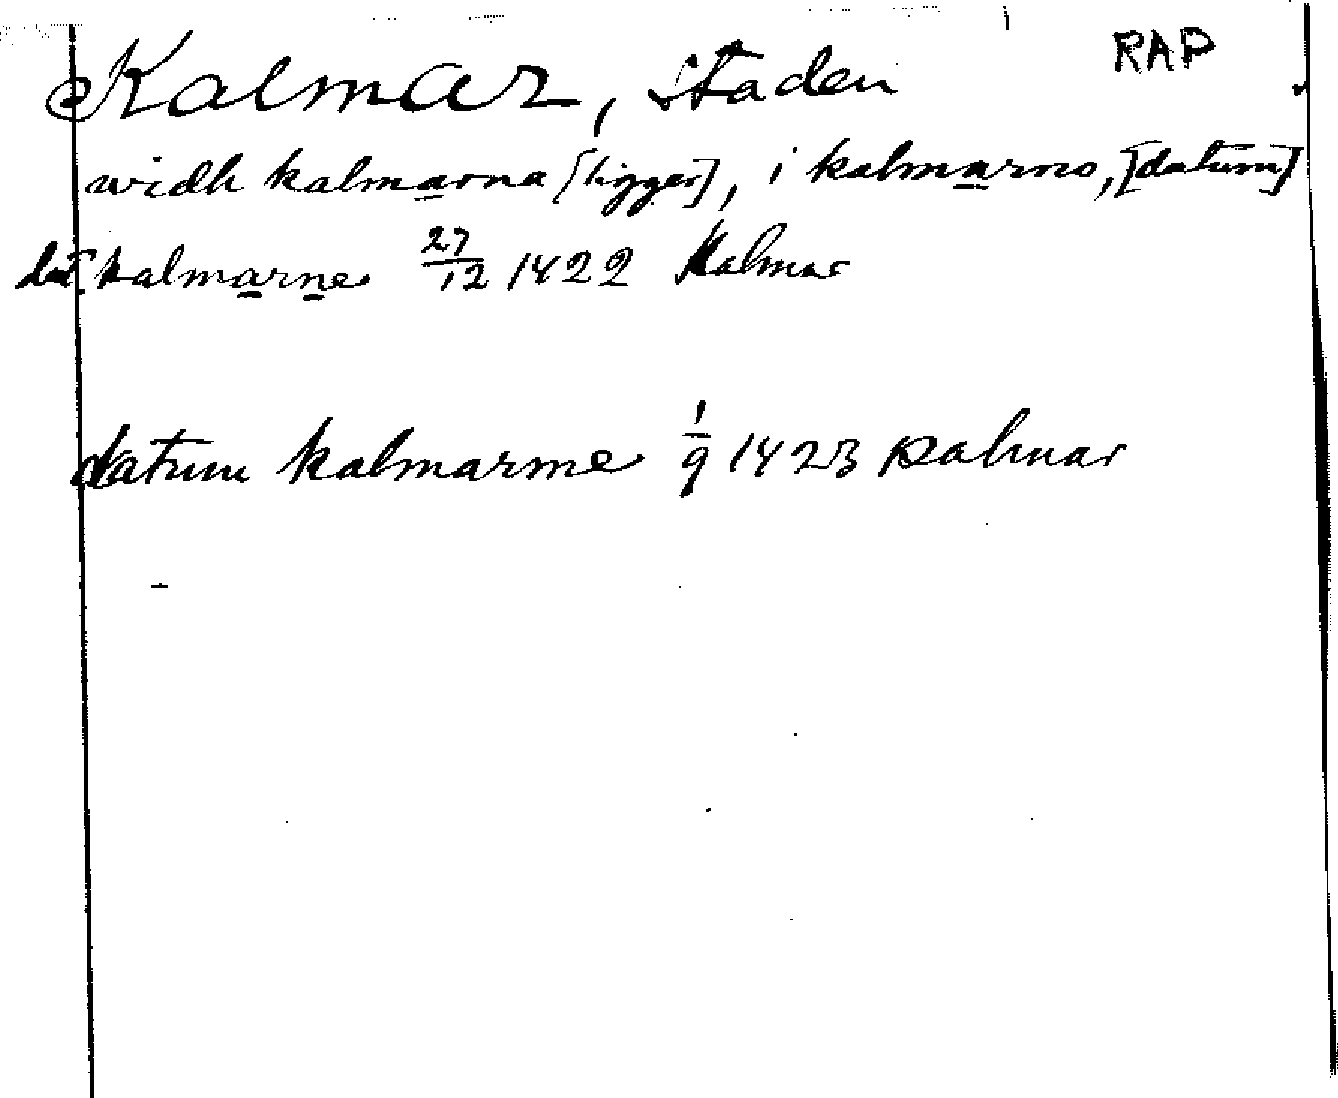 Kalmar, staden RAP
widh kalmarna [ligger], i kalmarno, [datum]
dat. kalmarne 27/12 1422 Kalmar
datum kalmarme 1/9 1423 Kalmar